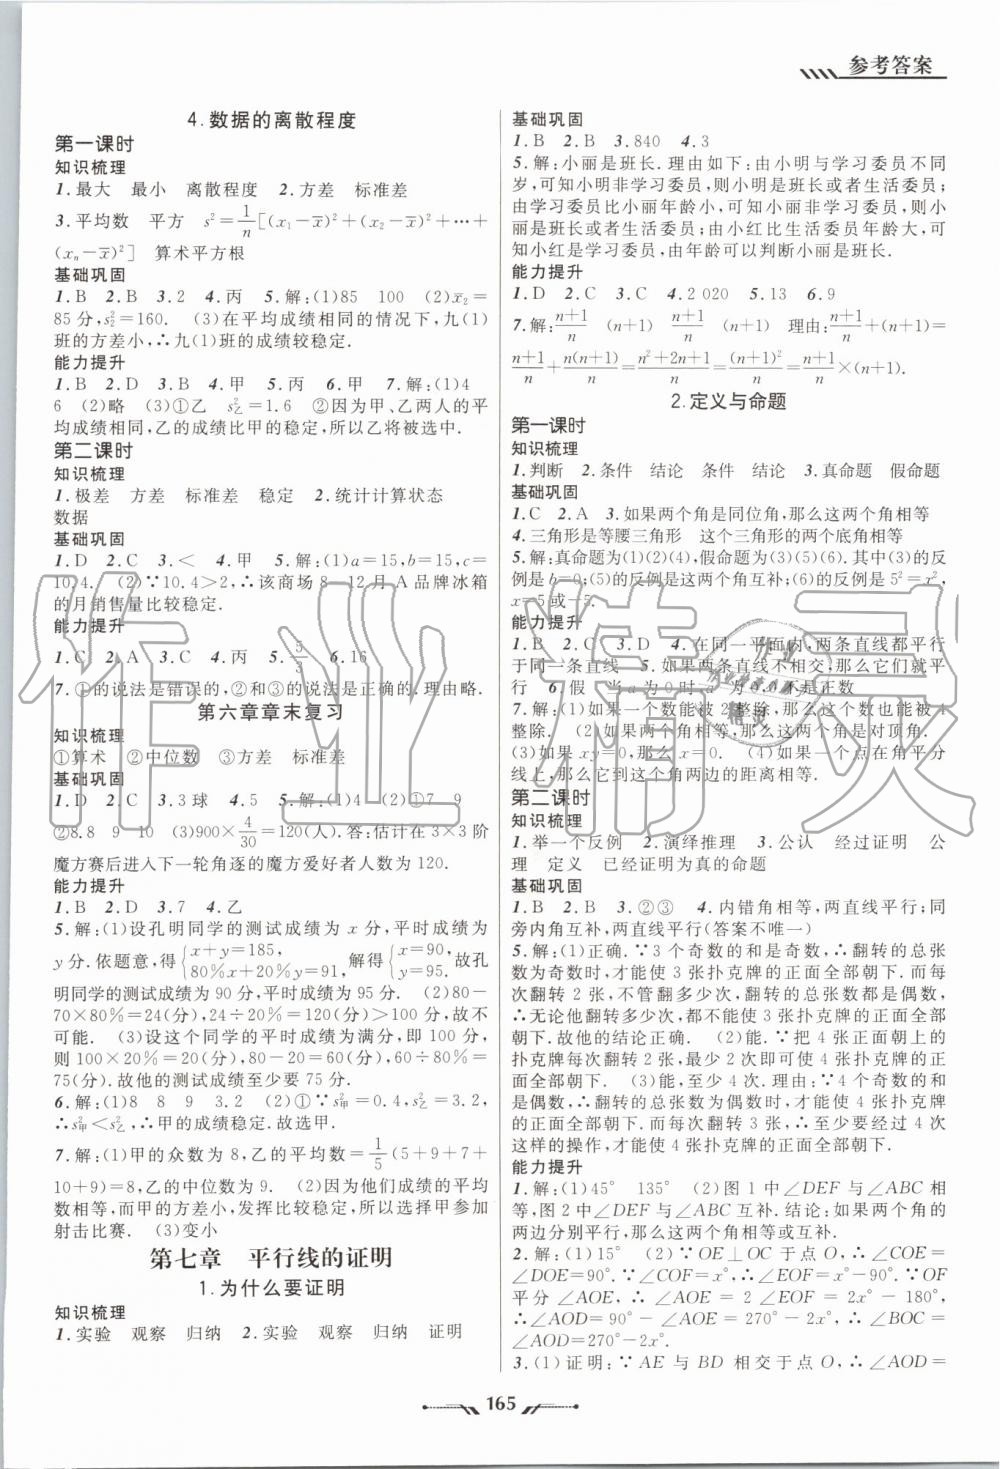 参考答案
4.数据的离散程度
第一课时
知识梳理
1.最大 最小 离散程度 2.方差 标准差
3.平均数 平方 s²=1/n[(x₁-x̅)²+(x₂-x̅)²+…+
(xₙ-x̅)²] 算术平方根
基础巩固
1.B 2.B 3.2 4.丙 5.解:(1)85 100 (2)x̅₂=
85分,s₂²=160. (3)在平均成绩相同的情况下,九(1)
班的方差小,∴九(1)班的成绩较稳定.
能力提升
1.B 2.D 3.B 4.甲 5.丙 6.甲 7.解:(1)4
6 (2)略 (3)①乙 s乙²=1.6 ②因为甲、乙两人的平
均成绩相同,乙的成绩比甲的稳定,所以乙将被选中.
第二课时
知识梳理
1.极差 方差 标准差 稳定 2.统计计算状态
数据
基础巩固
1.D 2.C 3.< 4.甲 5.解:(1)a=15,b=15,c=
10.4. (2)∵10.4>2,∴该商场8—12月A品牌冰箱
的月销售量比较稳定.
能力提升
1.C 2.A 3.C 4.丙 5.5/3 6.16
7.①的说法是错误的,②和③的说法是正确的.理由略.
第六章章末复习
知识梳理
①算术 ②中位数 ③方差 标准差
基础巩固
1.D 2.C 3.3球 4.5 5.解:(1)4 (2)①7 9
②8.8 9 10 (3)900×4/30=120(人).答:估计在3×3阶
魔方赛后进入下一轮角逐的魔方爱好者人数为120.
能力提升
1.B 2.D 3.7 4.乙
5.解:(1)设孔明同学的测试成绩为x分,平时成绩为
y分.依题意,得{x+y=185, 80%x+20%y=91, 解得{x=90, y=95. 故孔
明同学的测试成绩为90分,平时成绩为95分. (2)80-
70×80%=24(分),24÷20%=120(分)>100分,故不
可能. (3)设这个同学的平时成绩为满分,即100分,
则100×20%=20(分),(80-20)÷80%=60÷80%=
75(分).故他的测试成绩至少要75分.
6.解:(1)8 8 9 3.2 (2)①∵s甲²=0.4,s乙²=3.2,
∴s甲²<s乙²,∴甲的成绩稳定.故选甲.
7.解:(1)甲的众数为8,乙的平均数=1/5(5+9+7+
10+9)=8,乙的中位数为9. (2)因为他们成绩的平均
数相等,而甲的方差小,发挥比较稳定,所以选择甲参加
射击比赛. (3)变小
第七章 平行线的证明
1.为什么要证明
知识梳理
1.实验 观察 归纳 2.实验 观察 归纳 证明
基础巩固
1.B 2.B 3.840 4.3
5.解:小丽是班长.理由如下:由小明与学习委员不同
岁,可知小明非学习委员,则小明是班长或者生活委员;
由学习委员比小丽年龄小,可知小丽非学习委员,则小
丽为班长或者生活委员;由小红比生活委员年龄大,可
知小红是学习委员,由年龄可以判断小丽是班长.
能力提升
1.D 2.C 3.C 4.2 020 5.13 6.9
7.解:(n+1)/n (n+1) (n+1)/n (n+1) 理由:(n+1)/n+(n+1)=
(n+1)/n+n(n+1)/n=(n²+2n+1)/n=(n+1)²/n=(n+1)/n×(n+1).
2.定义与命题
第一课时
知识梳理
1.判断 2.条件 结论 条件 结论 3.真命题 假命题
基础巩固
1.C 2.A 3.如果两个角是同位角,那么这两个角相等
4.三角形是等腰三角形 这个三角形的两个底角相等
5.解:真命题为(1)(2)(4),假命题为(3)(5)(6).其中(3)的反
例是b=0;(5)的反例是这两个角互补;(6)的反例是5²=x²,
x=5或-5.
能力提升
1.B 2.C 3.D 4.在同一平面内,两条直线都平行
于同一条直线 5.如果两条直线不相交,那么它们平
行 6.假 当a为0时,a²为0,不是正数
7.解:(1)如果一个数能被2整除,那么这个数也能被4
整除. (2)如果两个角相等,那么这两个角是对顶角.
(3)如果xy=0,那么x=0. (4)如果一个点在角平分
线上,那么这个点到这个角两边的距离相等.
第二课时
知识梳理
1.举一个反例 2.演绎推理 3.公认 经过证明 公
理 定义 已经证明为真的命题
基础巩固
1.B 2.B 3.②③ 4.内错角相等,两直线平行;同
旁内角互补,两直线平行(答案不唯一)
5.解:(1)正确.∵3个奇数的和是奇数,∴翻转的总张
数为奇数时,才能使3张扑克牌的正面全部朝下.而每
次翻转2张,不管翻多少次,翻转的总张数都是偶数,
∴无论他翻转多少次,都不能使3张扑克牌的正面全部
朝下.故他的结论正确. (2)能,把4张正面朝上的
扑克牌每次翻转2张,最少2次即可使4张扑克牌的正
面全部朝下. (3)能,至少4次.理由:∵4个奇数的和
是偶数,∴翻转的总张数为偶数时,才能使4张扑克牌
的正面全部朝下.而每次翻转3张,∴至少要经过4次
这样的操作,才能使4张扑克牌的正面全部朝下.
能力提升
1.解:(1)45° 135° (2)图1中∠DEF与∠ABC相
等,图2中∠DEF与∠ABC互补.结论:如果两个角的
两边分别平行,那么这两个角相等或互补.
2.解:(1)15° (2)∵OE⊥OC于点O,∴∠COE=
∠DOE=90°.∵∠COF=x°,∴∠EOF=x°-90°.∵OF
平分∠AOE,∴∠AOE=2∠EOF=2x°-180°,
∴∠AOD=90°-∠AOE=270°-2x°,∴∠BOC=
∠AOD=270°-2x°.
3.(1)证明:∵AE与BD相交于点O,∴∠AOD=
165
作业精灵